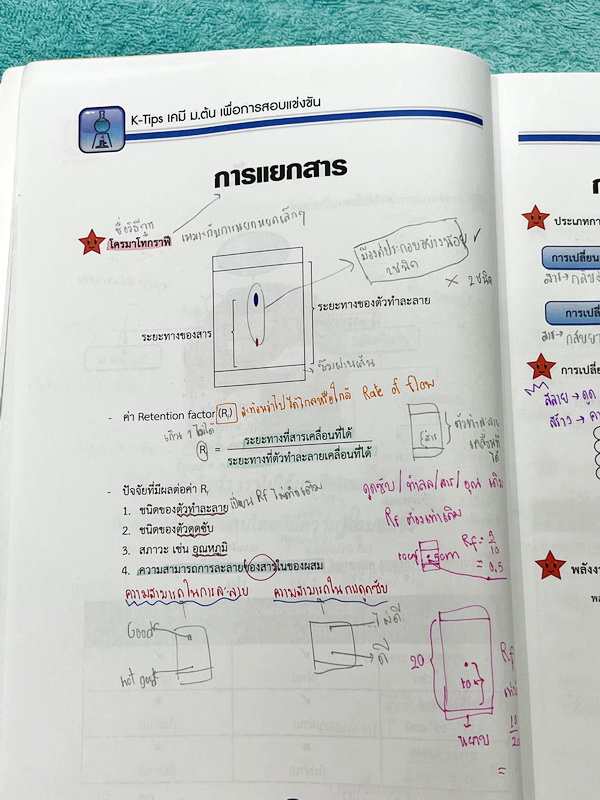 K-Tips เคมี ม.ต้น เพื่อการสอบแข่งขัน
การแยกสาร
โครมาโทกราฟี
เหมาะกับการแยกหยดเล็กๆ
มีองค์ประกอบอย่างน้อย
2ชนิด
× 2 ชนิด
ระยะทางของตัวทำละลาย
ระยะทางของสาร
ซึมผ่านเส้น
- ค่า Retention factor (Rf)
Rate of flow
เกิน 1 ไม่ได้
Rf = ระยะทางที่สารเคลื่อนที่ได้
ระยะทางที่ตัวทำละลายเคลื่อนที่ได้
สาร
ตัวทำละลาย
เคลื่อนที่
ได้
- ปัจจัยที่มีผลต่อค่า Rf
1. ชนิดของตัวทำละลาย
2. ชนิดของตัวดูดซับ
3. สภาวะ เช่น อุณหภูมิ
4. ความสามารถการละลายของสารในของผสม
เปลี่ยน Rf ไม่เท่าเดิม
ดูดซับ/ทำลล/สาร/อุณ เดิม
Rf ต้องเท่าเดิม
Rf = 5
10
= 0.5
ความสามารถในการละลาย
ความสามารถในการดูดซับ
Good
not good
ไม่ดี
ดี
20
10
Rf
10
20
=
ประเภทกา
การเปลี่ยน
การเปลี่
การเปลี่ย
สลาย → ดูด
สร้าง → คา
พลังง